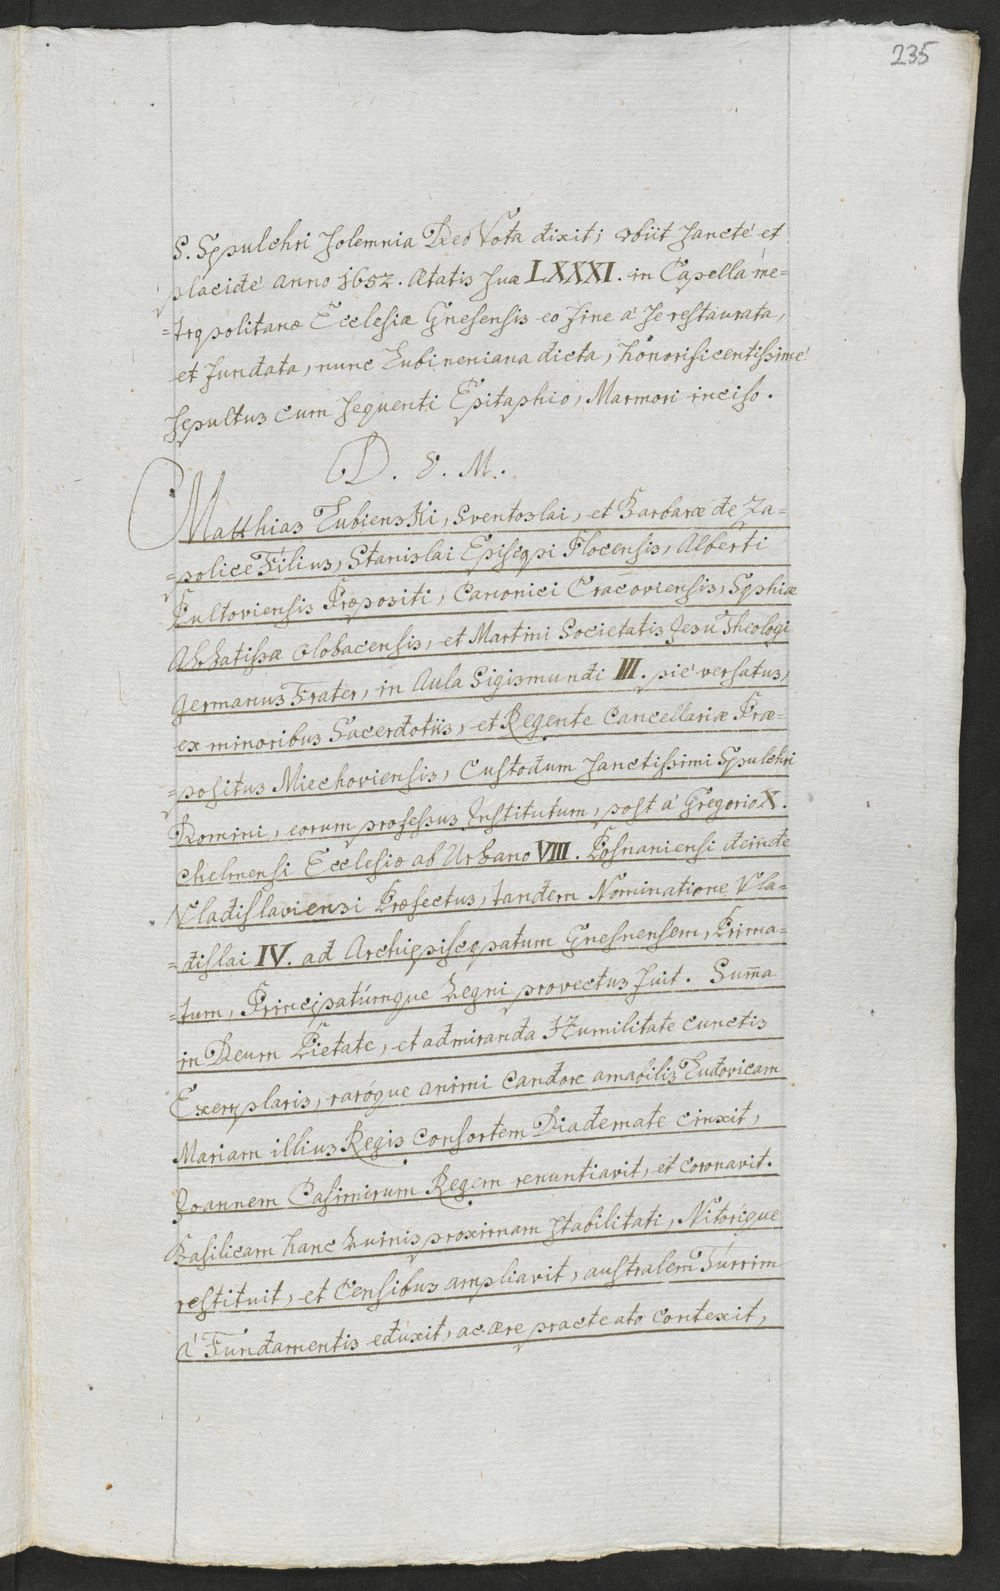 235
S. Sepulchri solemnia Deo Vota dixit; obiit sancté et
placidé anno 1652. Ætatis suæ LXXXI. in Capella me=
=tropolitanæ Ecclesiæ Gnesensis eo fine á se restaurata,
et fundata, nunc Łubineniana dicta, honorificentissimé
sepultus cum sequenti Epitaphio, Marmori inciso.
D. O. M.
Matthias Łubienski, Sventoslai, et Barbaræ de Za=
=police Filius, Stanislai Episcopi Plocensis, Alberti
Pultoviensis Præpositi, Canonici Cracoviensis, Sophiæ
Abbatissæ Olobacensis, et Martini Societatis Jesu Theologi
Germanus Frater, in Aula Sigismundi III. pié versatus,
ex minoribus Sacerdotiis, et Regente Cancellariæ Præ=
=positus Miechoviensis, Custodum sanctissimi Sepulchri
Domini, eorum professus Institutum, post á Gregorio X.
Chelmensi Ecclesiæ ab Urbano VIII. Posnaniensi deinde
Vladislaviensi Præfectus, tandem Nominatione Vla=
=dislai IV. ad Archiepiscopatum Gnesnensem, Prima=
=tum, Principatúmque Regni provectus fuit. Sum̄a
in Deum Pietate, et admiranda Humilitate cunctis
Exemplaris, raróque animi candore amabilis Ludovicam
Mariam illius Regis Consortem Diademate cinxit,
Joannem Casimirum Regem renuntiavit, et coronavit.
Basilicam hanc Ruinis proximam stabilitati, Nitorique
restituit, et Censibus ampliavit, australem Turrim
á Fundamentis eduxit, ac ære practeato contexit,